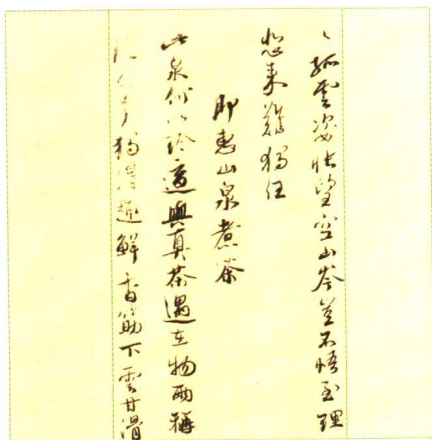 孤雲姿悵望空山岑豈不悟至理
悲來難獨任
即惠山泉煮茶
此泉何以珍適與真茶遇在物兩稱
予獨得趣鮮香筯下雲甘滑